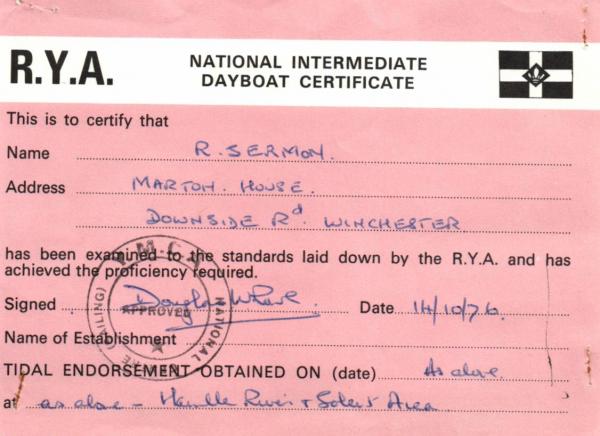 R.Y.A.
NATIONAL INTERMEDIATE
DAYBOAT CERTIFICATE
This is to certify that
Name R. SERMON.
Address MARTON. HOUSE.
DOWNSIDE Rd. WINCHESTER
has been examined to the standards laid down by the R.Y.A. and has
achieved the proficiency required.
Signed Douglas
Date 14/10/76
Y.M.C.A. NATIONAL CENTRE (SAILING)
APPROVED
Name of Establishment
TIDAL ENDORSEMENT OBTAINED ON (date) As above.
at as above - Hamble River + Solent Area